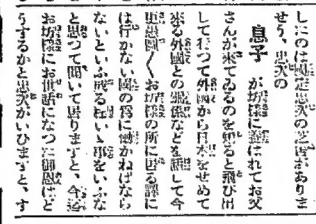 しにのは國定忠次の芝居がありま
せう、忠次の
息子　が坊樣に連れてお父
さんが來てゐるのを知ると飛び出
して行つて外國から日本をせめて
來る外國との關係などを話して今
更愚圖〱お坊樣の所に居る譯に
は行かない國の爲に働かねばなら
ないといふ成る程いゝ事をいふな
と思つて聞いて居りますと、今迄
お坊樣にお世話になつた御恩はど
うするかと忠次がいひますと、す